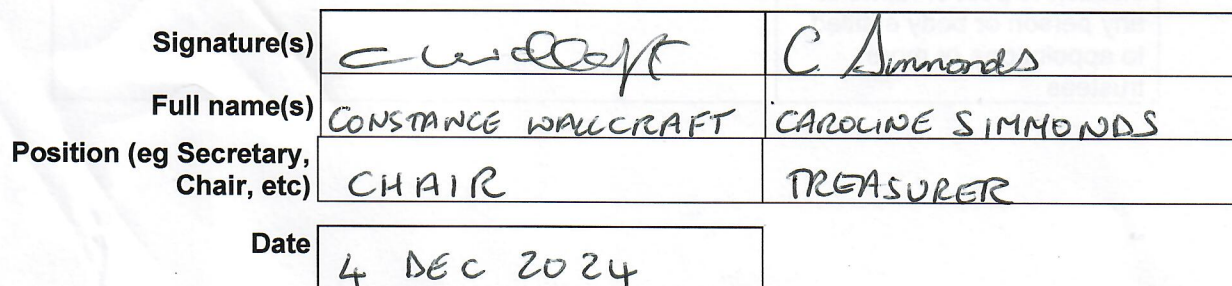 Signature(s) C Simmonds
Full name(s) CONSTANCE WALLCRAFT CAROLINE SIMMONDS
Position (eg Secretary,
Chair, etc) CHAIR TREASURER
Date 4 DEC 2024